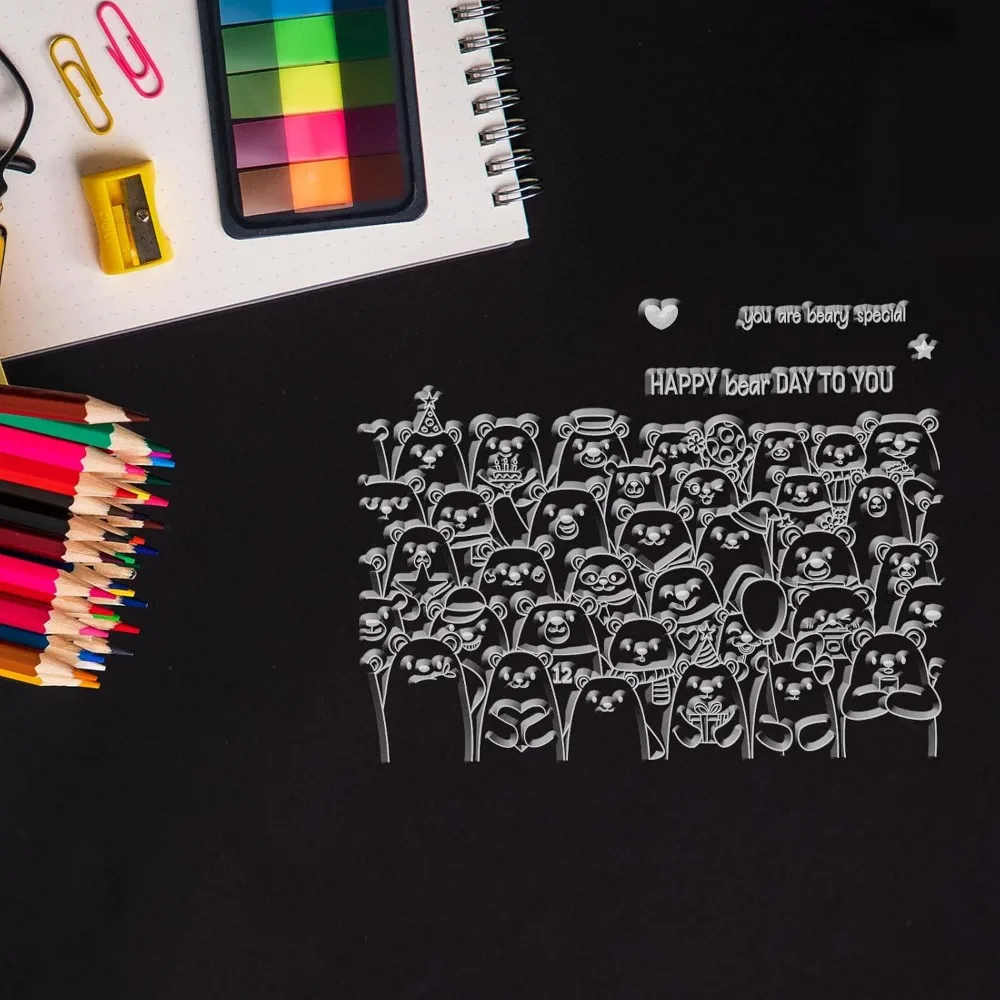 you are beary special
HAPPY bear DAY TO YOU
12